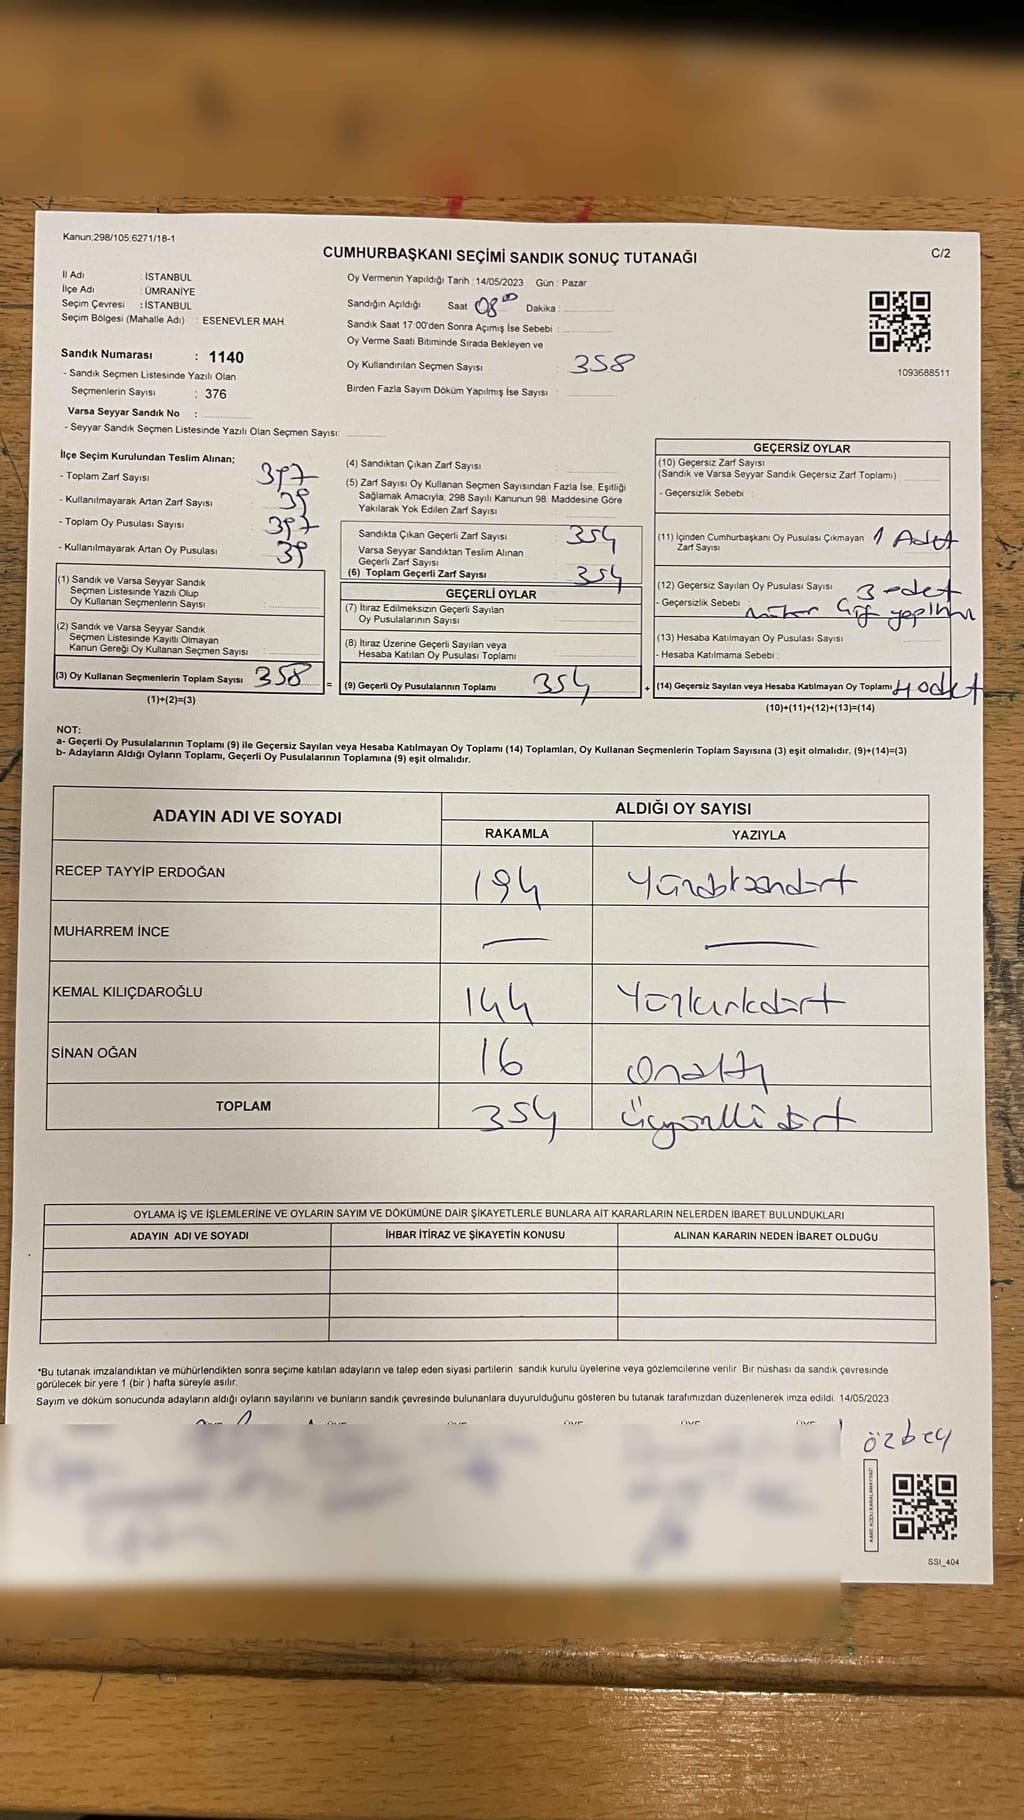 Kanun:298/105;6271/18-1
C/2
CUMHURBAŞKANI SEÇİMİ SANDIK SONUÇ TUTANAĞI
İl Adı : İSTANBUL
İlçe Adı : ÜMRANİYE
Seçim Çevresi : İSTANBUL
Seçim Bölgesi (Mahalle Adı) : ESENEVLER MAH.
Sandık Numarası : 1140
- Sandık Seçmen Listesinde Yazılı Olan
Seçmenlerin Sayısı : 376
Varsa Seyyar Sandık No :
- Seyyar Sandık Seçmen Listesinde Yazılı Olan Seçmen Sayısı:
Oy Vermenin Yapıldığı Tarih : 14/05/2023 Gün : Pazar
Sandığın Açıldığı Saat 08 00 Dakika :
Sandık Saat 17:00'den Sonra Açımış İse Sebebi :
Oy Verme Saati Bitiminde Sırada Bekleyen ve
Oy Kullandırılan Seçmen Sayısı : 358
Birden Fazla Sayım Döküm Yapılmış İse Sayısı :
1093688511
İlçe Seçim Kurulundan Teslim Alınan;
- Toplam Zarf Sayısı 397
- Kullanılmayarak Artan Zarf Sayısı 39
- Toplam Oy Pusulası Sayısı 397
- Kullanılmayarak Artan Oy Pusulası 39
(1) Sandık ve Varsa Seyyar Sandık
Seçmen Listesinde Yazılı Olup
Oy Kullanan Seçmenlerin Sayısı :
(2) Sandık ve Varsa Seyyar Sandık
Seçmen Listesinde Kayıtlı Olmayan
Kanun Gereği Oy Kullanan Seçmen Sayısı :
(3) Oy Kullanan Seçmenlerin Toplam Sayısı 358 =
(1)+(2)=(3)
(4) Sandıktan Çıkan Zarf Sayısı :
(5) Zarf Sayısı Oy Kullanan Seçmen Sayısından Fazla İse, Eşitliği
Sağlamak Amacıyla, 298 Sayılı Kanunun 98. Maddesine Göre
Yakılarak Yok Edilen Zarf Sayısı :
Sandıkta Çıkan Geçerli Zarf Sayısı : 354
Varsa Seyyar Sandıktan Teslim Alınan
Geçerli Zarf Sayısı :
(6) Toplam Geçerli Zarf Sayısı : 354
GEÇERLİ OYLAR
(7) İtiraz Edilmeksizin Geçerli Sayılan
Oy Pusulalarının Sayısı :
(8) İtiraz Üzerine Geçerli Sayılan veya
Hesaba Katılan Oy Pusulası Toplamı :
(9) Geçerli Oy Pusulalarının Toplamı 354 +
GEÇERSİZ OYLAR
(10) Geçersiz Zarf Sayısı
(Sandık ve Varsa Seyyar Sandık Geçersiz Zarf Toplamı) :
- Geçersizlik Sebebi :
(11) İçinden Cumhurbaşkanı Oy Pusulası Çıkmayan 1 Adet
Zarf Sayısı
(12) Geçersiz Sayılan Oy Pusulası Sayısı : 3 adet
- Geçersizlik Sebebi : çift
(13) Hesaba Katılmayan Oy Pusulası Sayısı :
- Hesaba Katılmama Sebebi :
(14) Geçersiz Sayılan veya Hesaba Katılmayan Oy Toplamı 4 adet
(10)+(11)+(12)+(13)=(14)
NOT:
a- Geçerli Oy Pusulalarının Toplamı (9) ile Geçersiz Sayılan veya Hesaba Katılmayan Oy Toplamı (14) Toplamları, Oy Kullanan Seçmenlerin Toplam Sayısına (3) eşit olmalıdır. (9)+(14)=(3)
b- Adayların Aldığı Oyların Toplamı, Geçerli Oy Pusulalarının Toplamına (9) eşit olmalıdır.
ADAYIN ADI VE SOYADI
ALDIĞI OY SAYISI
RAKAMLA YAZIYLA
RECEP TAYYİP ERDOĞAN 194 Yüzdoksandört
MUHARREM İNCE — —
KEMAL KILIÇDAROĞLU 144 Yüzkırkdört
SİNAN OĞAN 16 Onaltı
TOPLAM 354 üçyüzellidört
OYLAMA İŞ VE İŞLEMLERİNE VE OYLARIN SAYIM VE DÖKÜMÜNE DAİR ŞİKAYETLERLE BUNLARA AİT KARARLARIN NELERDEN İBARET BULUNDUKLARI
ADAYIN ADI VE SOYADI İHBAR İTİRAZ VE ŞİKAYETİN KONUSU ALINAN KARARIN NEDEN İBARET OLDUĞU
*Bu tutanak imzalandıktan ve mühürlendikten sonra seçime katılan adayların ve talep eden siyasi partilerin sandık kurulu üyelerine veya gözlemcilerine verilir. Bir nüshası da sandık çevresinde
görülecek bir yere 1 (bir ) hafta süreyle asılır.
Sayım ve döküm sonucunda adayların aldığı oyların sayılarını ve bunların sandık çevresinde bulunanlara duyurulduğunu gösteren bu tutanak tarafımızdan düzenlenerek imza edildi. 14/05/2023
özbey
KARE KODU KARALAMAYINIZ!
SSI_404